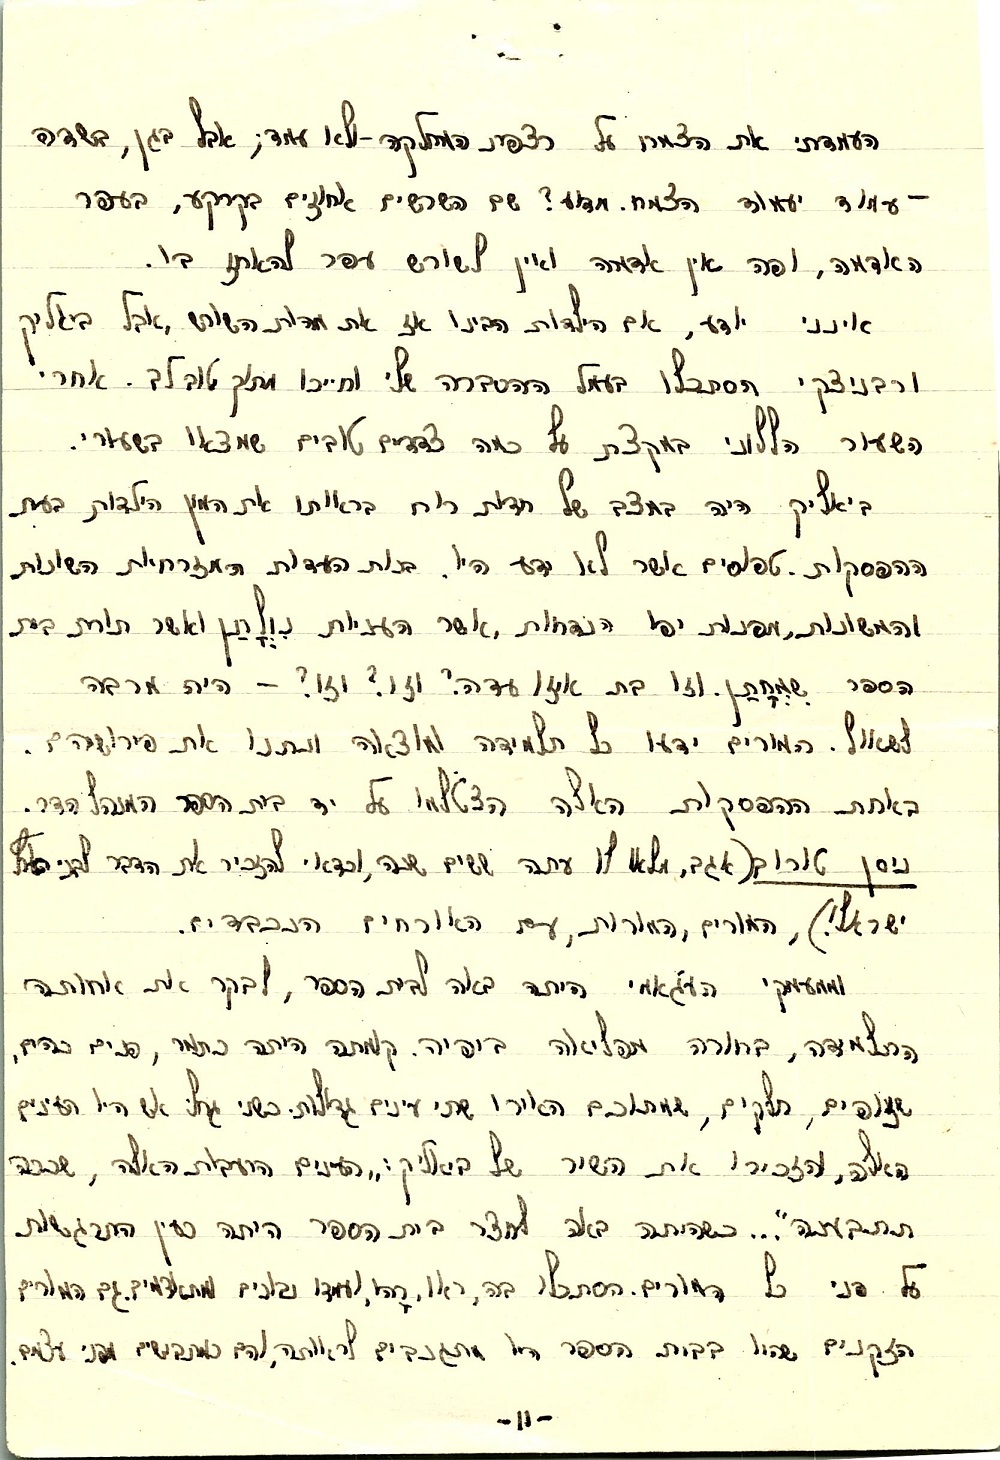 העמדתי את הצמח על רצפת המחלקה – ולא עמד; אבל בגן, בשדה
– עמוד יעמוד הצמח. מדוע? שם השרשים אחוזים בקרקע, בעפר
האדמה, ופה אין אדמה ואין לשורש עפר להאחז בו.
אינני יודע, אם הילדות הבינו אז את מהות השורש, אבל ביאליק
ורבניצקי הסתכלו בעמל ההסברה שלי וחייכו מתוך טוב לב. אחרי
השעור הללוני במקצת על כמה צדדים טובים שמצאו בשעורי.
ביאליק היה במצב של חדות רוח בראותו את המון הילדות בעת
ההפסקות. טפוסים אשר לא ידע היו. בנות העדות המזרחיות השונות
והמשונות, מפנות יפו הנדחות, אשר העניות נִוְּלָתַן ואשר תורת בית
הספר שִׂמְּחָתַן. וזו בת איזו עדה? וזו? וזו? – היה מרבה
לשאול. המורים ידעו כל תלמידה ומוצאה ונתנו את פירושיהם.
באחת ההפסקות האלה הצטלמו על יד בית הספר המנהל הדר.
ניסן טורוב (אגב, מלאו לו עתה ששים שנה, וכדאי להזכיר את הדבר לבני
ישראל!), המורים, המורות, עם האורחים הנכבדים.
וממעמקי העג'אמי היתה באה לבית הספר, לבקר את אחותה
התלמידה, בחורה מפליאה ביפיה. קומתה היתה כתמר, פנים כהים,
שזופים, חלקים, שמתוכם האירו שתי עינים גדולות. כשני גחלי אש היו העינים
האלה, והזכירו את השיר של ביאליק: "העינים הרעבות האלה, שככה
תתבענה"... כשהיתה באה לחצר בית הספר היתה כעין התרגשות
על פני כל המורים. הסתכלו בה, ראו, תָּהוּ, ועמדו נבוכים ומתאדמים. גם המורים
הזקנים שהיו בבית הספר היו מתגנבים לראותה, והם כמתביישים מפני עצמם.
-11-